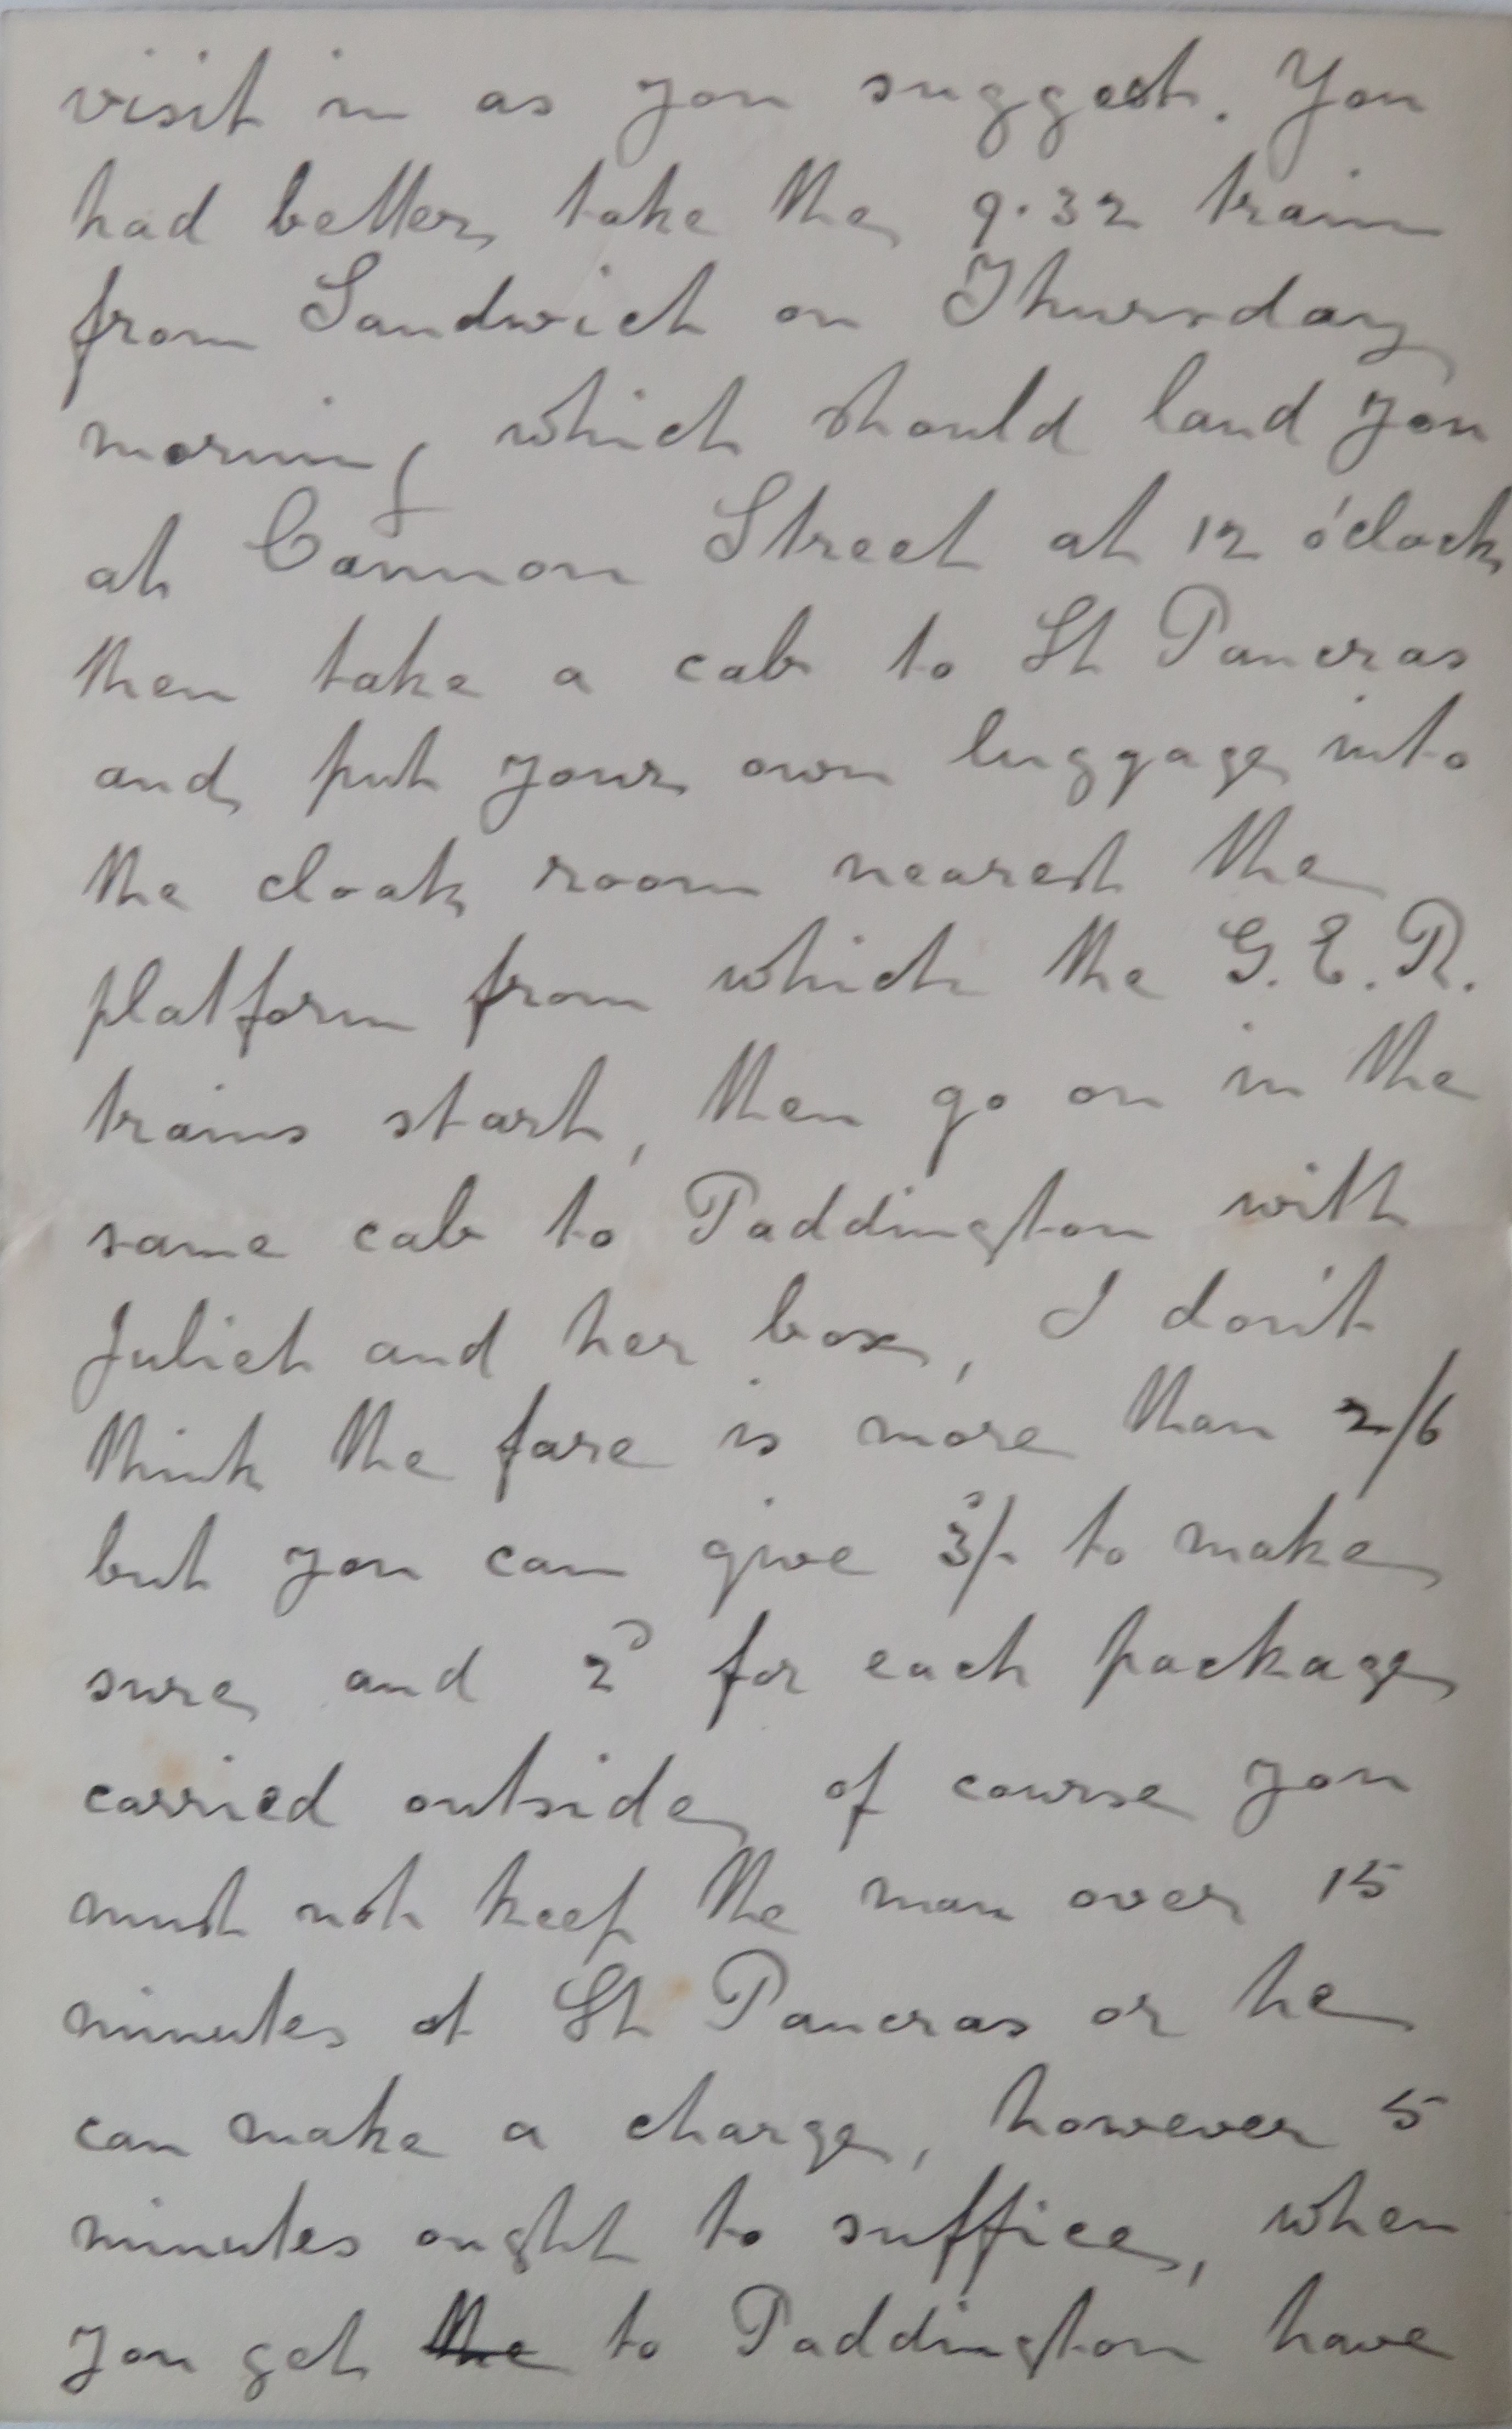 visit in as you suggest. You
had better take the 9.32 train
from Sandwich on Thursday
morning which should land you
at Cannon Street at 12 o'clock
then take a cab to St Pancras
and put your own luggage into
the cloak room nearest the
platform from which the G.E.R.
trains start, then go on in the
same cab to Paddington with
Juliet and her box, I don't
think the fare is more than 2/6
but you can give 3/- to make
sure and 2d for each package
carried outside, of course you
must not keep the man over 15
minutes at St Pancras or he
can make a charge, however 5
minutes ought to suffice, when
you get the to Paddington have